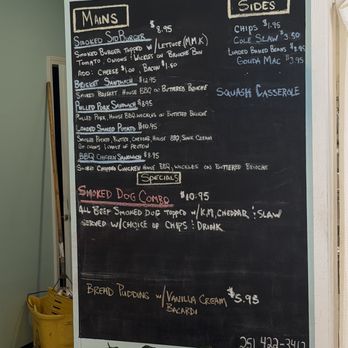 MAINS
SMOKED SIDBURGER $8.95
SMOKED BURGER TOPPED W/ LETTUCE (M.M.K)
TOMATO, ONIONS & WICKLES ON BRIOCHE BUN
ADD: CHEESE $1.00, BACON $1.50
BRISKET SANDWICH $12.95
SMOKED BRISKET, HOUSE BBQ ON BUTTERED BRIOCHE
PULLED PORK SANDWICH $8.95
PULLED PORK, HOUSE BBQ, WICKLES ON BUTTERED BRIOCHE
LOADED SMOKED POTATO $10.95
SMOKED POTATO, BUTTER, CHEDDAR, HOUSE BBQ, SOUR CREAM
CHOICE OF PROTEIN
BBQ CHICKEN SANDWICH $8.95
SMOKED CHOPPED CHICKEN HOUSE BBQ, WICKLES ON BUTTERED BRIOCHE
SPECIALS
SMOKED DOG COMBO $10.95
ALL BEEF SMOKED DOG TOPPED W/ K.M, CHEDDAR, & SLAW
SERVED W/ CHOICE OF CHIPS & DRINK
BREAD PUDDING W/ VANILLA CREAM $5.95
BACARDI
SIDES
CHIPS $1.95
COLE SLAW $3.50
LOADED BAKED BEANS $3.95
GOUDA MAC $3.95
SQUASH CASSEROLE
251 422-3412